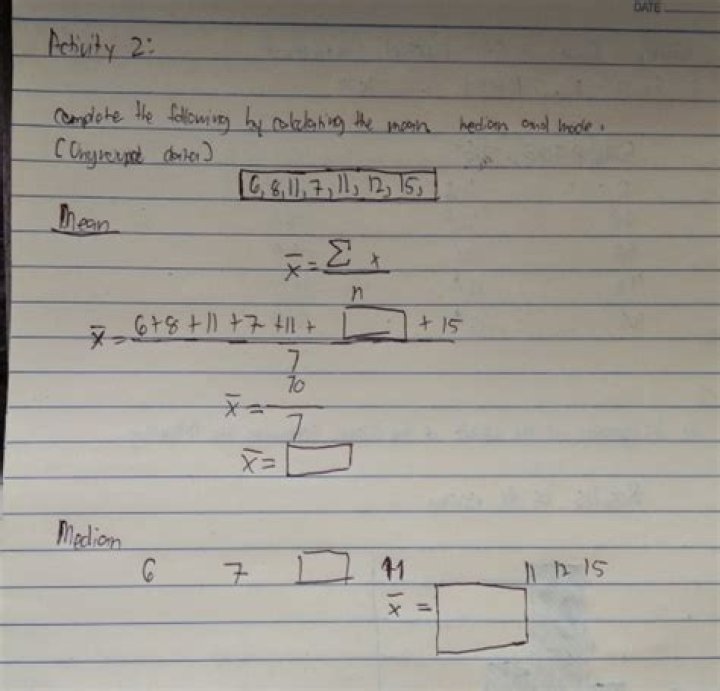 DATE
Activity 2:
Complete the following by calculating the mean median and mode.
(Ungrouped data)
6, 8, 11, 7, 11, 12, 15,
Mean
x̄ = Σ x
n
x̄ = 6+8+11+7+11+ + 15
7
x̄ = 70
7
x̄ =
Median
6 7 11 11 12 15
x̄ =